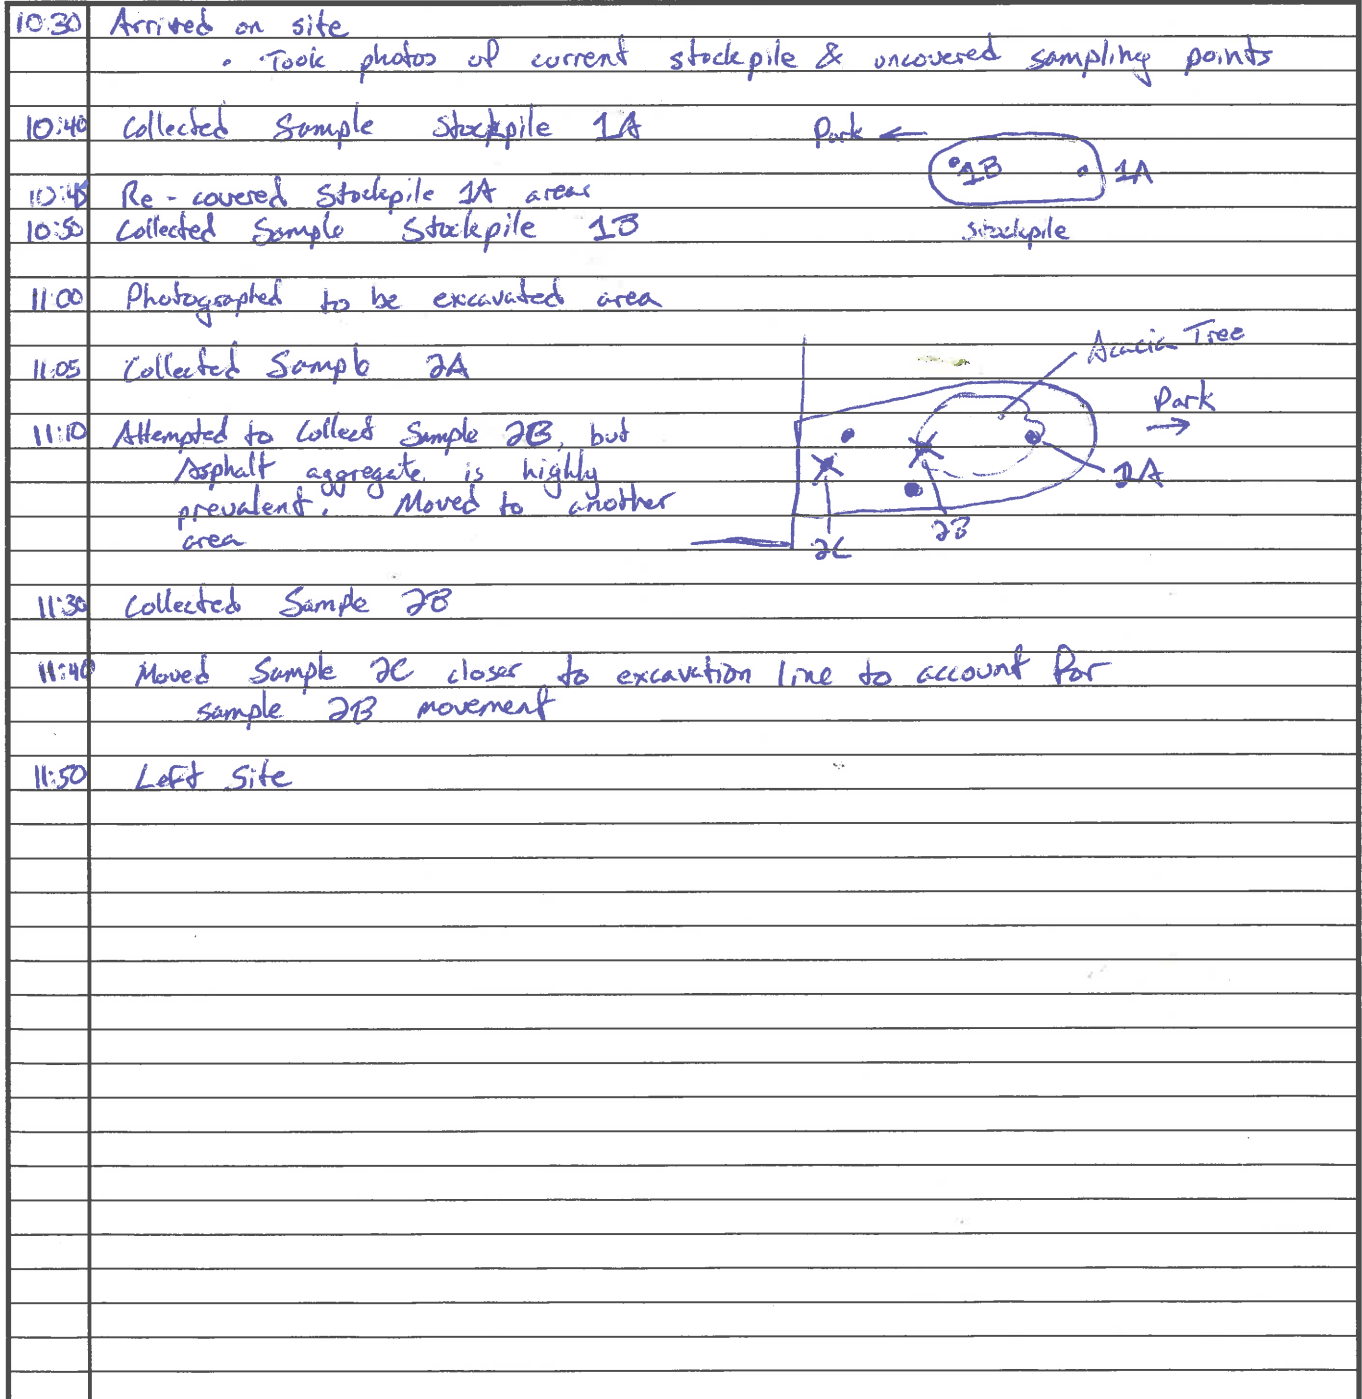 10:30 Arrived on site
• Took photos of current stockpile & uncovered sampling points
10:40 Collected Sample Stockpile 1A
Park ←
1B 1A
10:45 Re-covered Stockpile 1A areas
10:50 Collected Sample Stockpile 1B
Stockpile
11:00 Photographed to be excavated area
Acacia Tree
11:05 Collected Sample 2A
Park →
11:10 Attempted to Collect Sample 2B, but
Asphalt aggregate is highly
2A
prevalent. Moved to another
area
2C 2B
11:30 Collected Sample 2B
11:40 Moved Sample 2C closer to excavation line to account for
sample 2B movement
11:50 Left Site